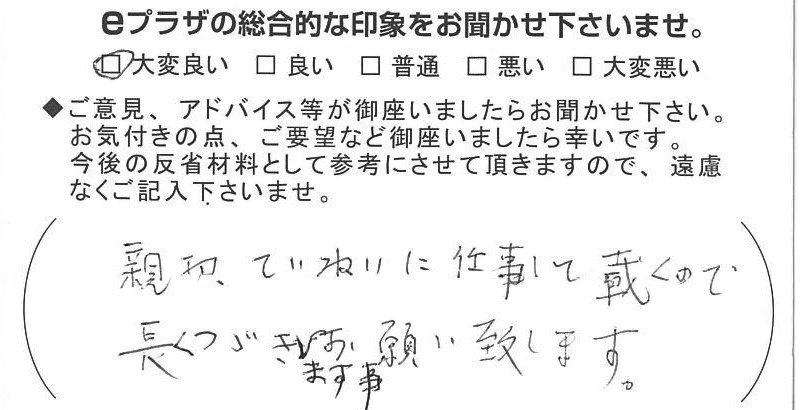 eプラザの総合的な印象をお聞かせ下さいませ。
□ 大変良い □ 良い □ 普通 □ 悪い □ 大変悪い
◆ご意見、アドバイス等が御座いましたらお聞かせ下さい。
お気付きの点、ご要望など御座いましたら幸いです。
今後の反省材料として参考にさせて頂きますので、遠慮
なくご記入下さいませ。
親切、ていねいに仕事して載くので
長くつづきます事お願い致します。